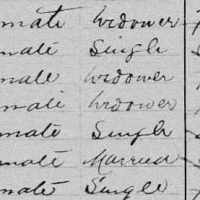 mate Widower
mate Single
mate Widower
mate Widower
mate Single
mate Married
mate Single